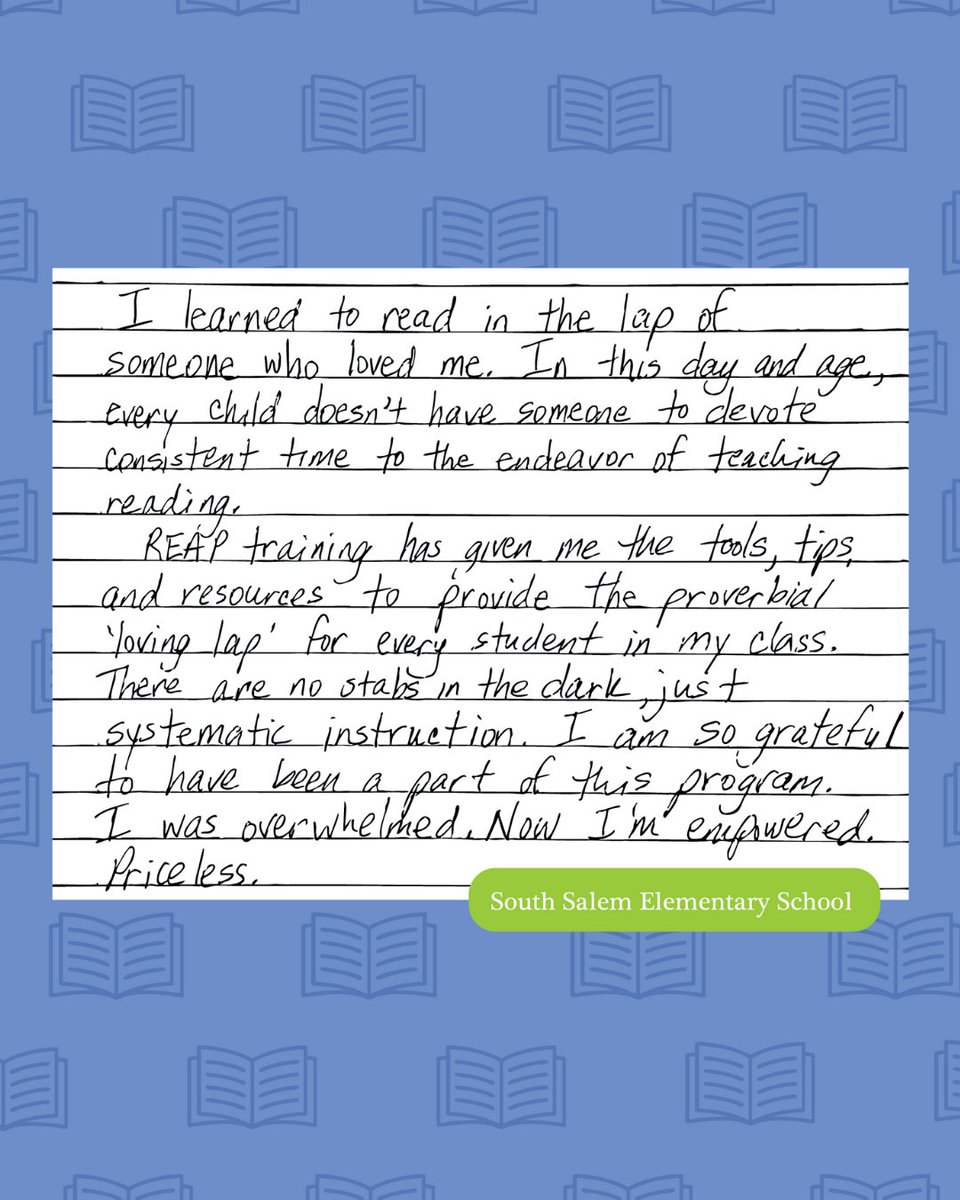 I learned to read in the lap of
someone who loved me. In this day and age,
every child doesn't have someone to devote
consistent time to the endeavor of teaching
reading.
REAP training has given me the tools, tips,
and resources to provide the proverbial
'loving lap' for every student in my class.
There are no stabs in the dark, just
systematic instruction. I am so grateful
to have been a part of this program.
I was overwhelmed. Now I'm empowered.
Priceless.
South Salem Elementary School